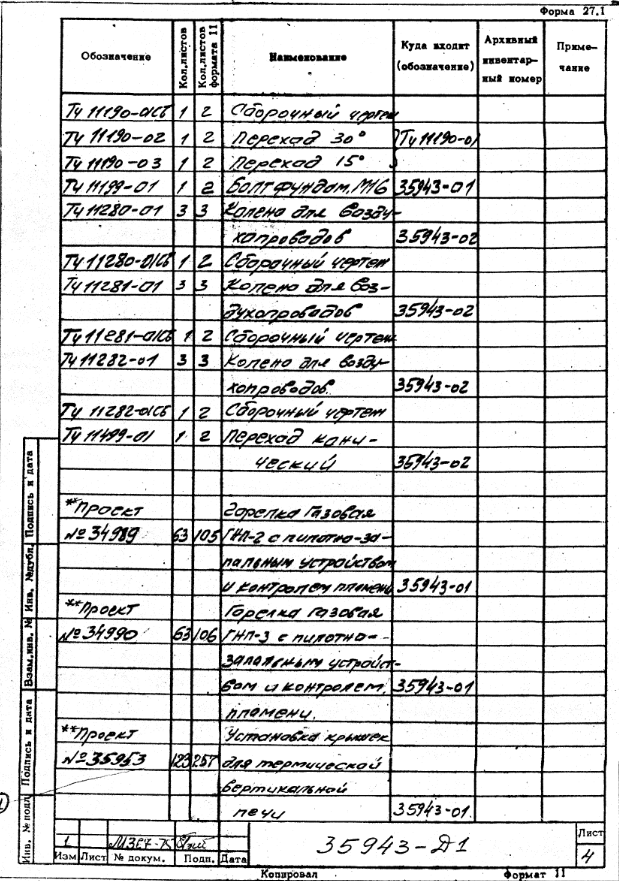 Форма 27.1
Обозначение Кол.листов Кол.листов формата 11 Наименование Куда входит (обозначение) Архивный инвентарный номер Примечание
Ту 11190-01СБ 1 2 Сборочный чертеж
Ту 11190-02 1 2 Переход 30° Ту 11190-01
Ту 11190-03 1 2 Переход 15°
Ту 11199-01 1 2 Болт фундам. М16 35943-01
Ту 11280-01 3 3 Колено для возду-
хопроводов 35943-02
Ту 11280-01СБ 1 2 Сборочный чертеж
Ту 11281-01 3 3 Колено для воз-
духопроводов 35943-02
Ту 11281-01СБ 1 2 Сборочный чертеж
Ту 11282-01 3 3 Колено для возду-
хопроводов. 35943-02
Ту 11282-01СБ 1 2 Сборочный чертеж
Ту 11499-01 1 2 Переход кони-
ческий 35943-02
**Проект Горелка газовая
№ 34989 63 105 ГНП-2 с пилотно-за-
пальным устройством
и контролем пламени 35943-01
**Проект Горелка газовая
№ 34990 63 106 ГНП-3 с пилотно-
запальным устройст-
вом и контролем 35943-01
пламени.
**Проект Установка крышек
№ 35953 123 257 для термической
вертикальной
печи 35943-01
Инв. № подл Подпись и дата Взам.инв. № Инв. №дубл. Подпись и дата
1
Изм Лист № докум. Подп. Дата
35943-Д1
Лист
4
Копировал Формат 11